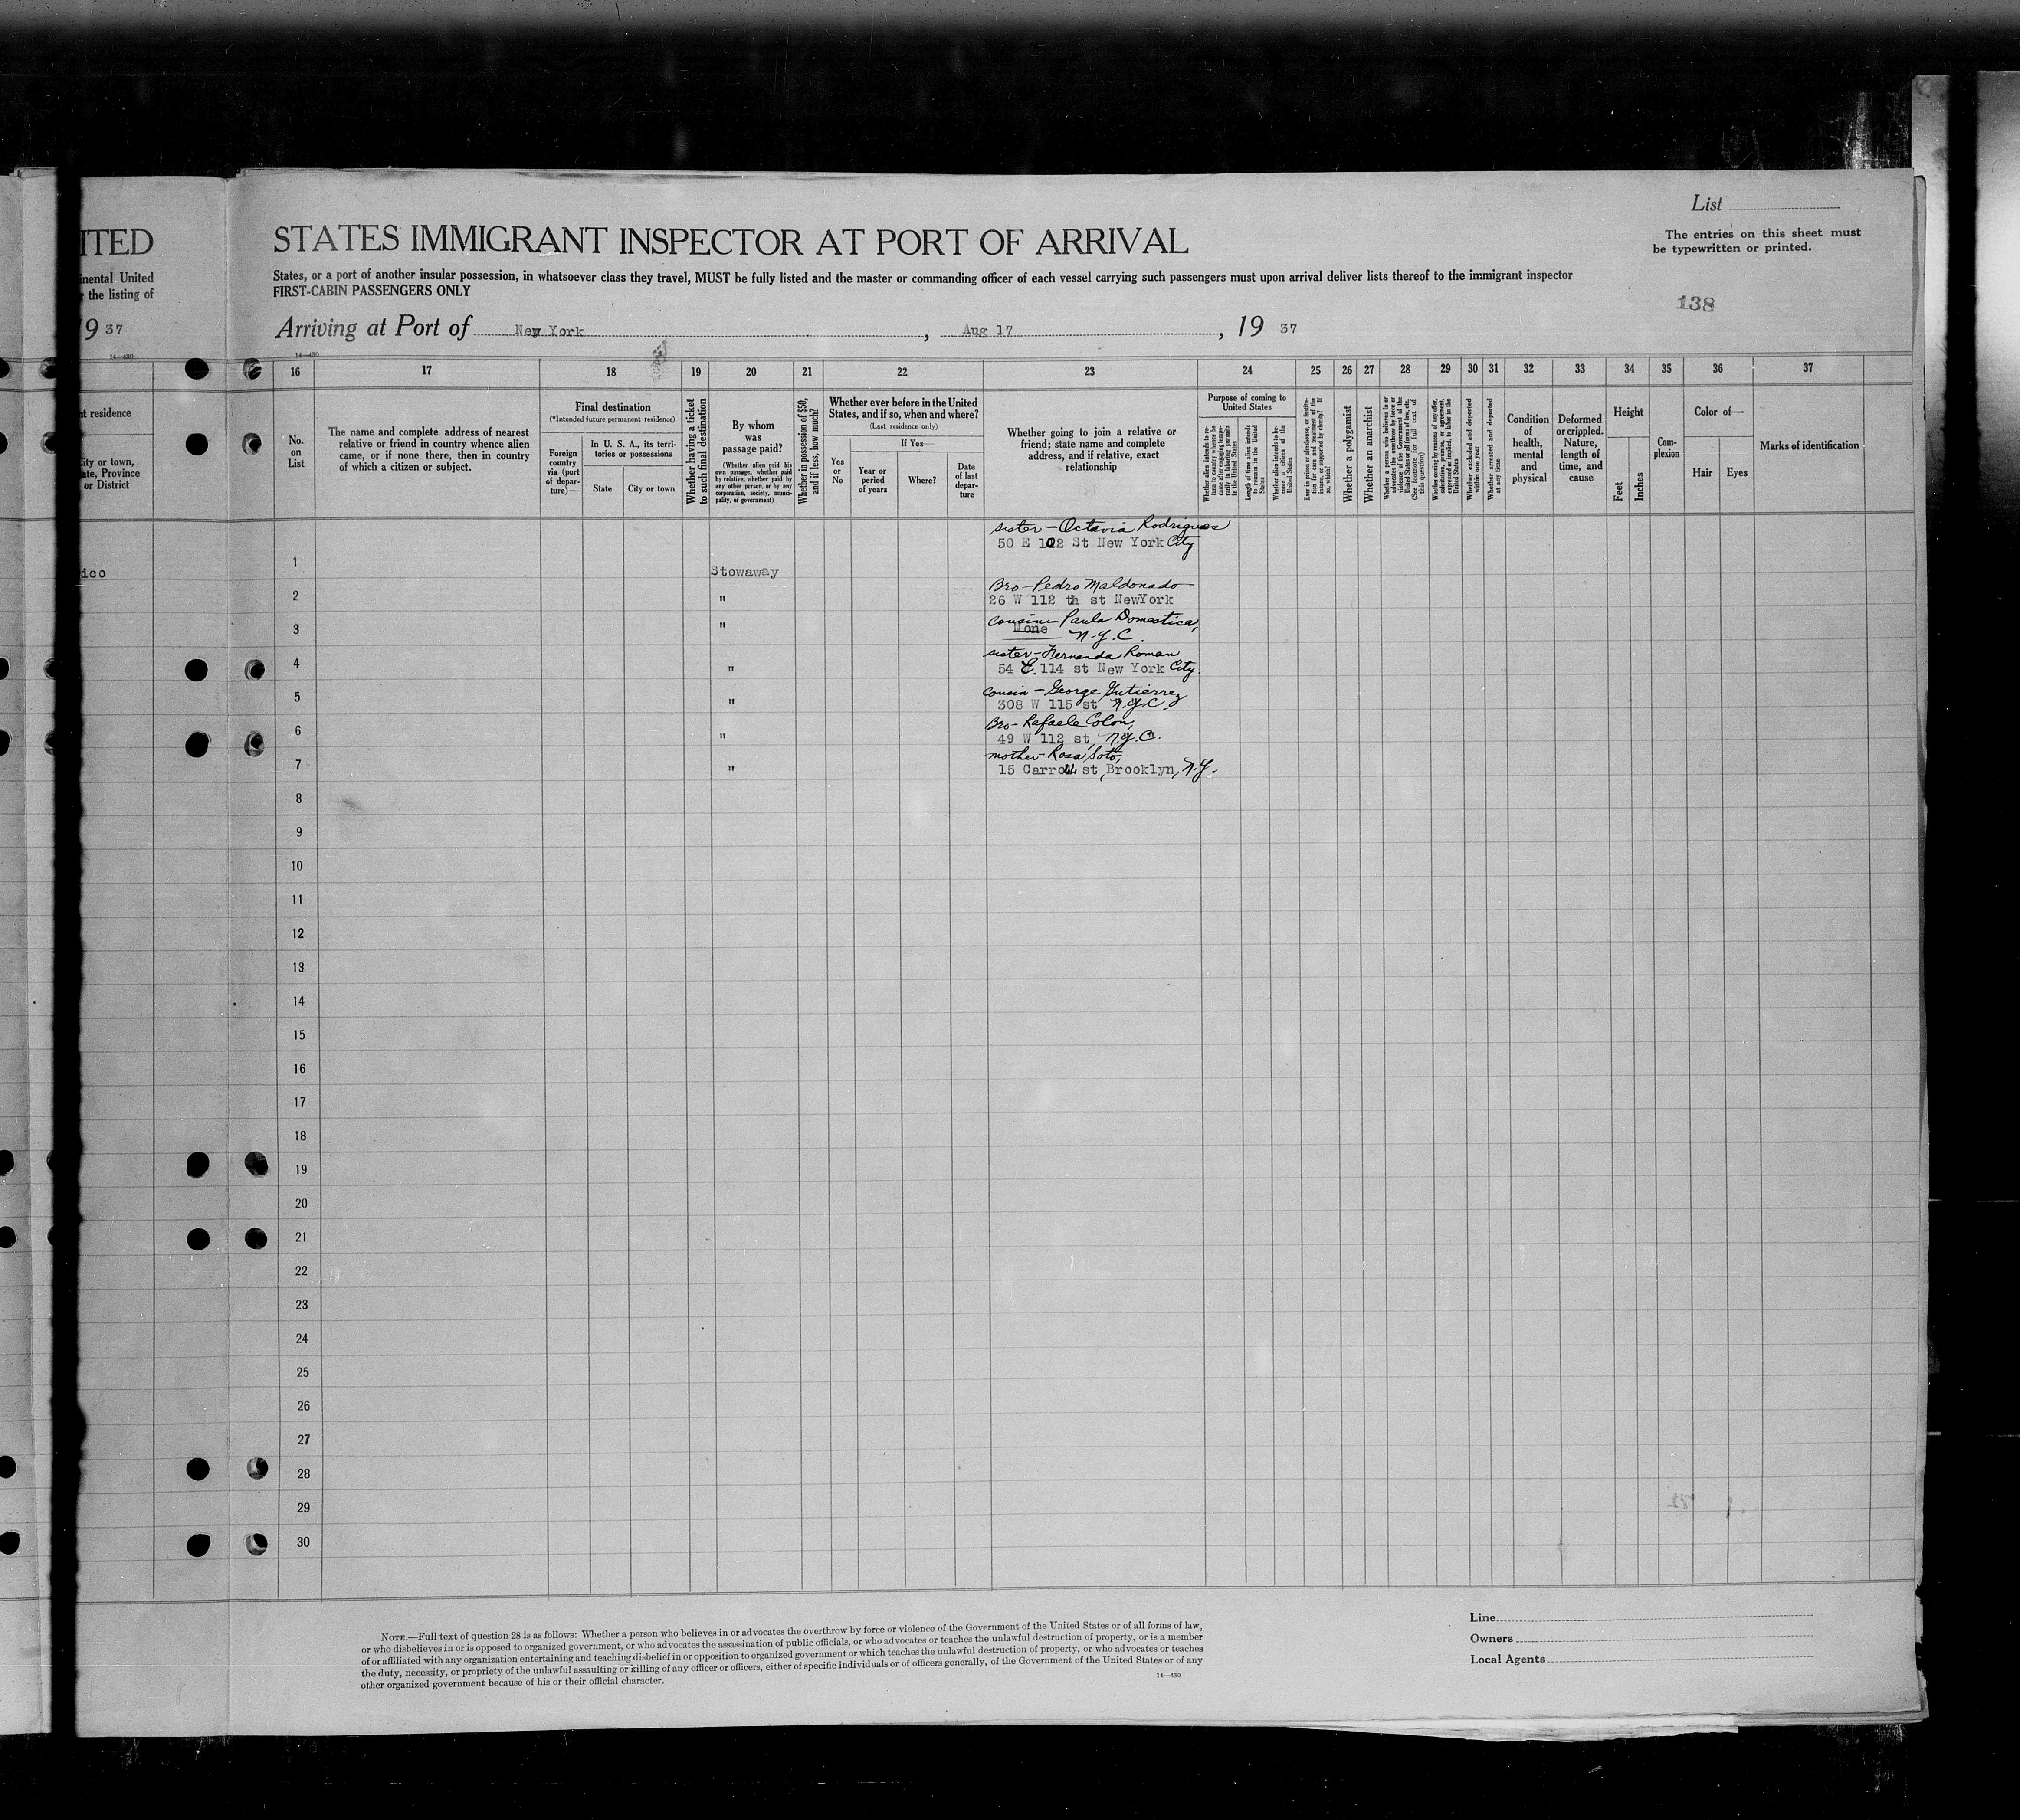 ITED
inental United
r the listing of
19 37
14—430
nt residence
City or town,
ate, Province
or District
ico
List
The entries on this sheet must
be typewritten or printed.
STATES IMMIGRANT INSPECTOR AT PORT OF ARRIVAL
States, or a port of another insular possession, in whatsoever class they travel, MUST be fully listed and the master or commanding officer of each vessel carrying such passengers must upon arrival deliver lists thereof to the immigrant inspector
FIRST-CABIN PASSENGERS ONLY
138
Arriving at Port of New York, Aug 17, 19 37
14—430
16 17 18 19 20 21 22 23 24 25 26 27 28 29 30 31 32 33 34 35 36 37
No.
on
List
The name and complete address of nearest
relative or friend in country whence alien
came, or if none there, then in country
of which a citizen or subject.
Final destination
(*Intended future permanent residence)
Foreign
country
via (port
of depar-
ture)—
In U. S. A., its terri-
tories or possessions
State
City or town
Whether having a ticket
to such final destination
By whom
was
passage paid?
(Whether alien paid his
own passage, whether paid
by relative, whether paid by
any other person, or by any
corporation, society, munici-
pality, or government)
Whether in possession of $50,
and if less, how much?
Whether ever before in the United
States, and if so, when and where?
(Last residence only)
Yes
or
No
If Yes—
Year or
period
of years
Where?
Date
of last
depar-
ture
Whether going to join a relative or
friend; state name and complete
address, and if relative, exact
relationship
Purpose of coming to
United States
Length of time alien intends
to remain in the United
States
Whether alien intends to be-
come a citizen of the
United States
Whether a polygamist
Whether an anarchist
Whether excluded and deported
within one year
Whether arrested and deported
at any time
Condition
of
health,
mental
and
physical
Deformed
or crippled.
Nature,
length of
time, and
cause
Height
Feet
Inches
Com-
plexion
Color of—
Hair
Eyes
Marks of identification
sister — Octavia Rodrigues
50 E 102 St New York City
1
Stowaway
Bro — Pedro Maldonado
2 " 26 W 112 th st NewYork
cousin Paula Domestica,
3 " None N.Y.C.
sister — Fernanda Roman
4 " 54 E. 114 st New York City.
cousin — George Gutierrez
5 " 308 W 115 st N.Y.C.
Bro — Rafaele Colon,
6 " 49 W 112 st, N.Y.C.
mother — Rosa Soto,
7 " 15 Carroll st, Brooklyn, N.Y.
8
9
10
11
12
13
14
15
16
17
18
19
20
21
22
23
24
25
26
27
28
29
30
NOTE.—Full text of question 28 is as follows: Whether a person who believes in or advocates the overthrow by force or violence of the Government of the United States or of all forms of law,
or who disbelieves in or is opposed to organized government, or who advocates the assassination of public officials, or who advocates or teaches the unlawful destruction of property, or is a member
of or affiliated with any organization entertaining and teaching disbelief in or opposition to organized government or which teaches the unlawful destruction of property, or who advocates or teaches
the duty, necessity, or propriety of the unlawful assaulting or killing of any officer or officers, either of specific individuals or of officers generally, of the Government of the United States or of any
other organized government because of his or their official character.
14—430
Line
Owners
Local Agents